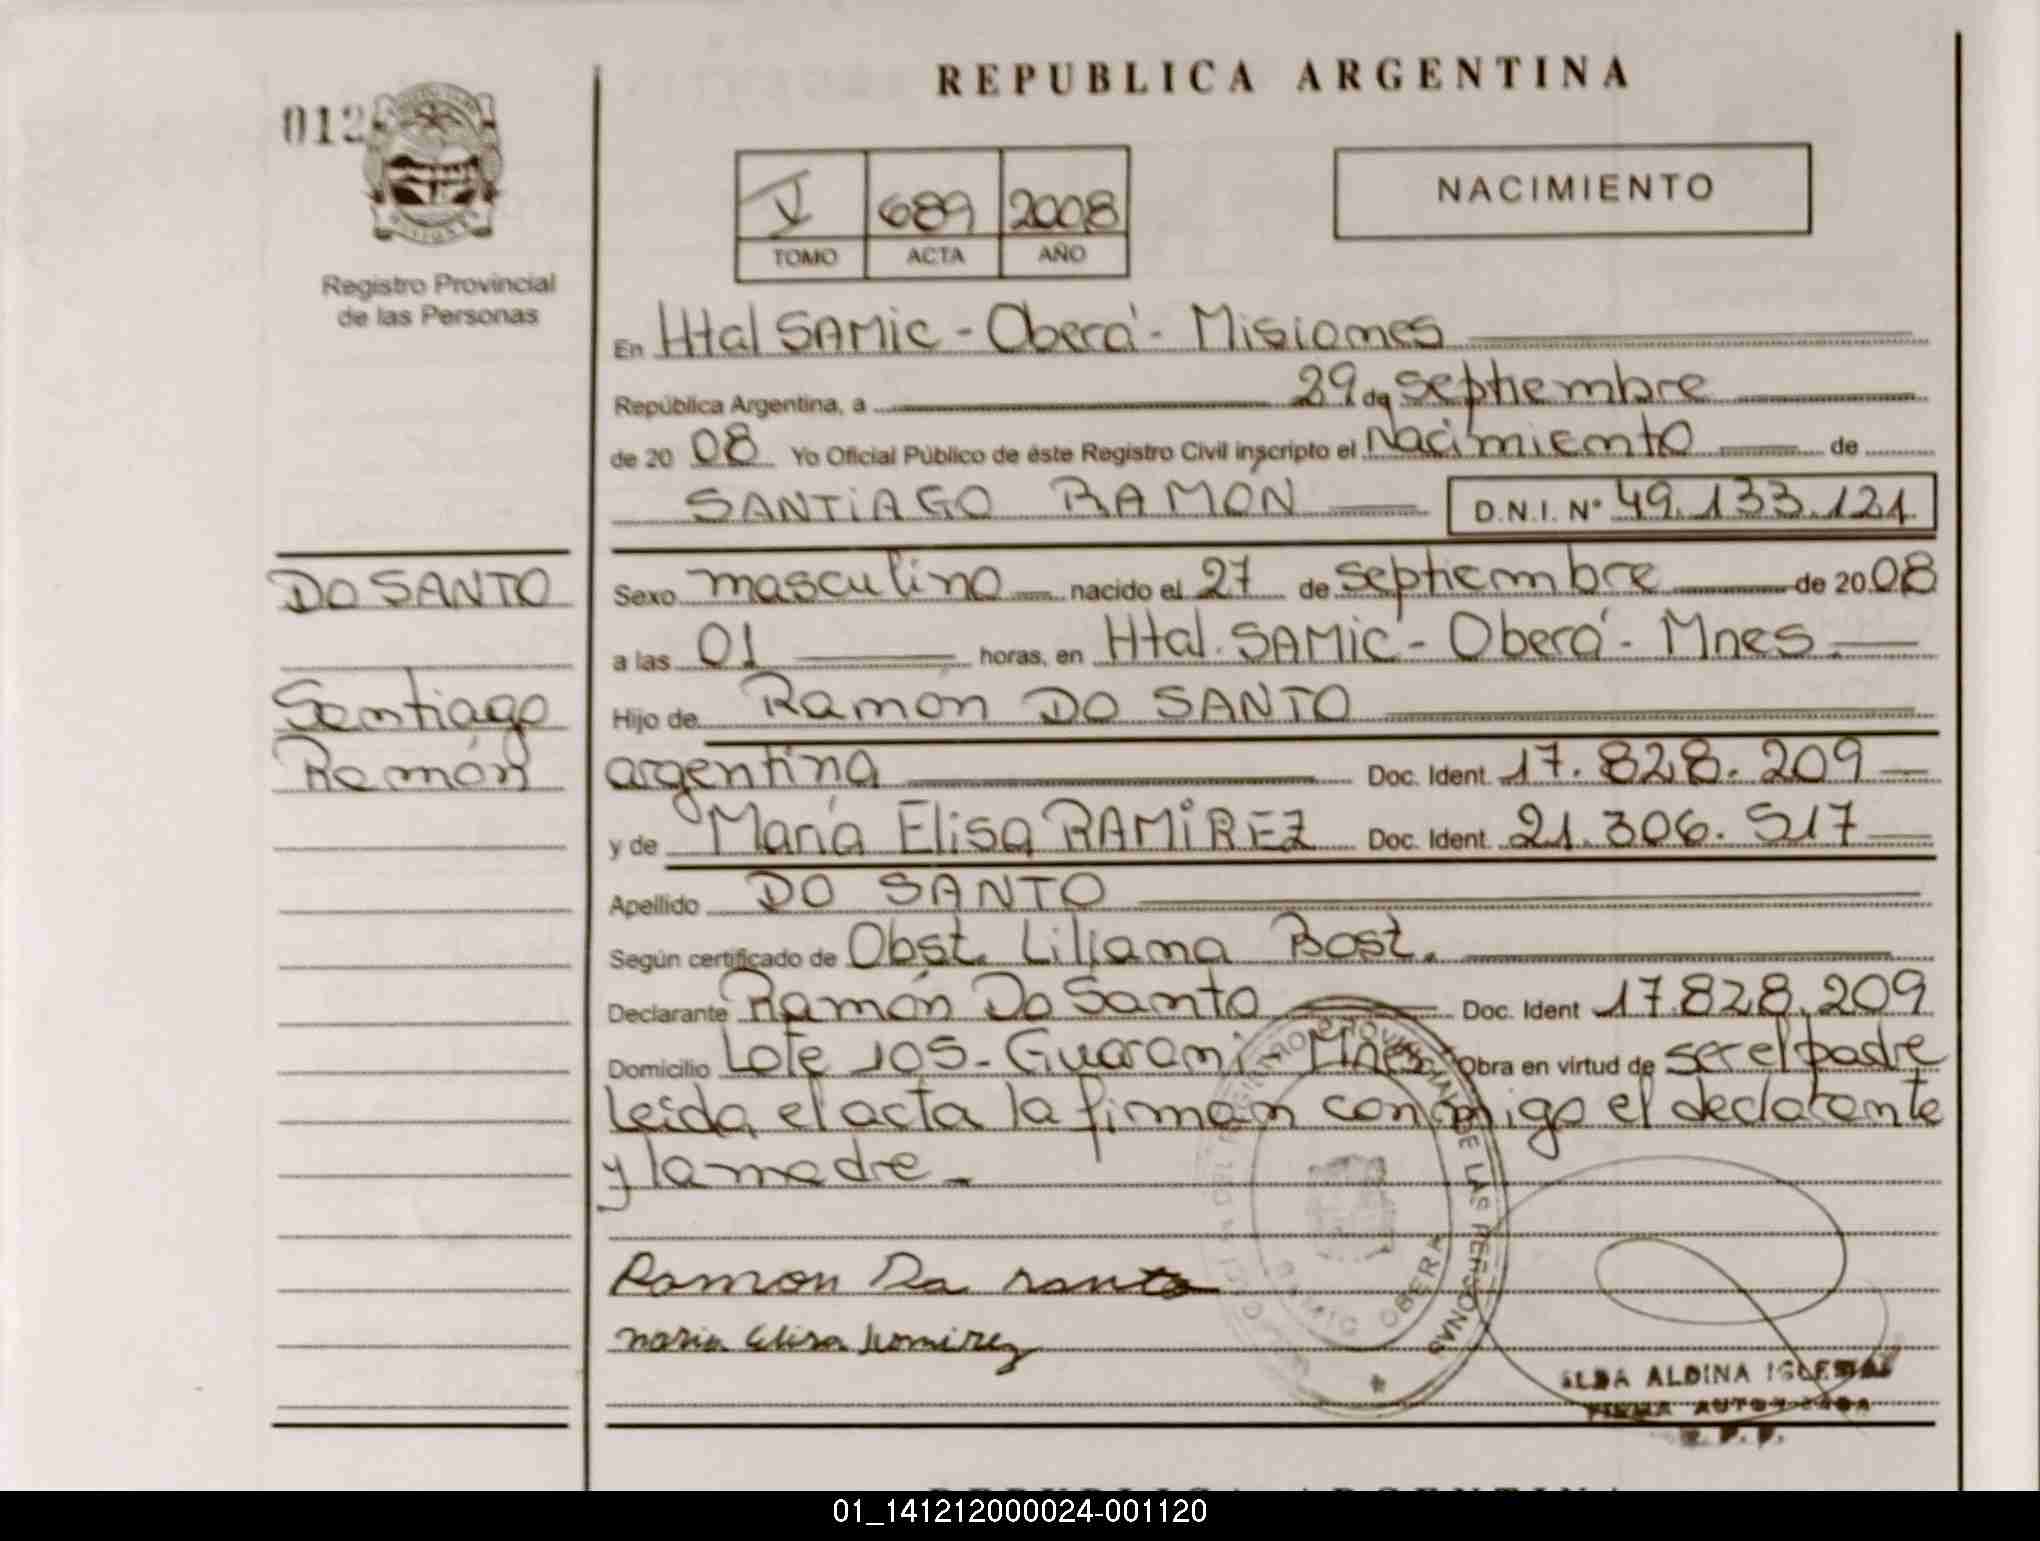 REPUBLICA ARGENTINA
012
V 689 2008
TOMO ACTA AÑO
NACIMIENTO
Registro Provincial
de las Personas
En Htal SAMIC - Oberá - Misiones
República Argentina, a 29 de septiembre
de 20 08 Yo Oficial Público de éste Registro Civil inscripto el Nacimiento de
SANTIAGO RAMÓN D.N.I. Nº 49.133.121
DO SANTO
Santiago
Ramón
Sexo masculino nacido el 27 de septiembre de 2008
a las 01 horas, en Htal. SAMIC - Oberá - Mnes.
Hijo de Ramón DO SANTO
argentina Doc. Ident. 17.828.209
y de María Elisa RAMIREZ Doc. Ident. 21.306.517
Apellido DO SANTO
Según certificado de Obst. Liliana Bost.
Declarante Ramón Do Santo Doc. Ident 17.828.209
Domicilio Lote 105 - Guaraní - Mnes Obra en virtud de ser el padre
leída el acta la firman conmigo el declarante
y la madre.
Ramon Da santo
maria Elisa Ramirez
DE LAS PERSONAS
SAMIC OBERA
ELBA ALDINA IGLESIAS
FIRMA AUTORIZADA
R.P.P.
01_141212000024-001120